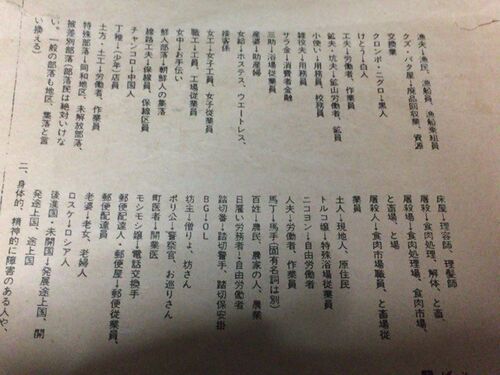 漁夫→漁民、漁船員、漁船乗組員
クズ・バタ屋→廃品回収業、資源
交換業
クロンボ・ニグロ→黒人
けとう→白人
工夫→労働者、作業員
鉱夫・坑夫→鉱山労働者、鉱員
小使い→用務員、校務員
雑役夫→用務員
サラ金→消費者金融
三助→浴場従業員
産婆→助産婦
女給→ホステス、ウエートレス、
接客係
女工→女子工員、女子従業員
職工→工員、工場従業員
女中→お手伝い
鮮人部落→朝鮮人の集落
線路工夫→保線員、保線区員
チャンコロ→中国人
丁稚→(少年)店員
土方・土工→労働者、作業員
特殊部落→同和地区、未解放部落、
被差別部落(部落民は絶対いけな
い、一般の部落も地区、集落と言
い換える)
床屋→理容師、理髪師
屠殺→食肉処理、解体、と畜、
屠殺場→食肉処理場、食肉市場、
と畜場、と場
屠殺人→食肉市場職員、と畜場従
業員
土人→現地人、原住民
トルコ嬢→特殊浴場従業員
ニコヨン→自由労働者
人夫→労働者、作業員
馬丁→馬手(固有名詞は別)
百姓→農民、農家の人、農業
日雇い労働者→自由労働者
踏切番→踏切警手、踏切保安掛
BG→OL
坊主→僧りょ、坊さん
ポリ公→警察官、お巡りさん
町医者→開業医
モシモシ嬢→電話交換手
郵便配達人・郵便屋→郵便従業員、
郵便配達員
老婆→老女、老婦人
ロスケ→ロシア人
後進国・未開国→発展途上国、開
発途上国、途上国
二、身体的、精神的に障害のある人や、